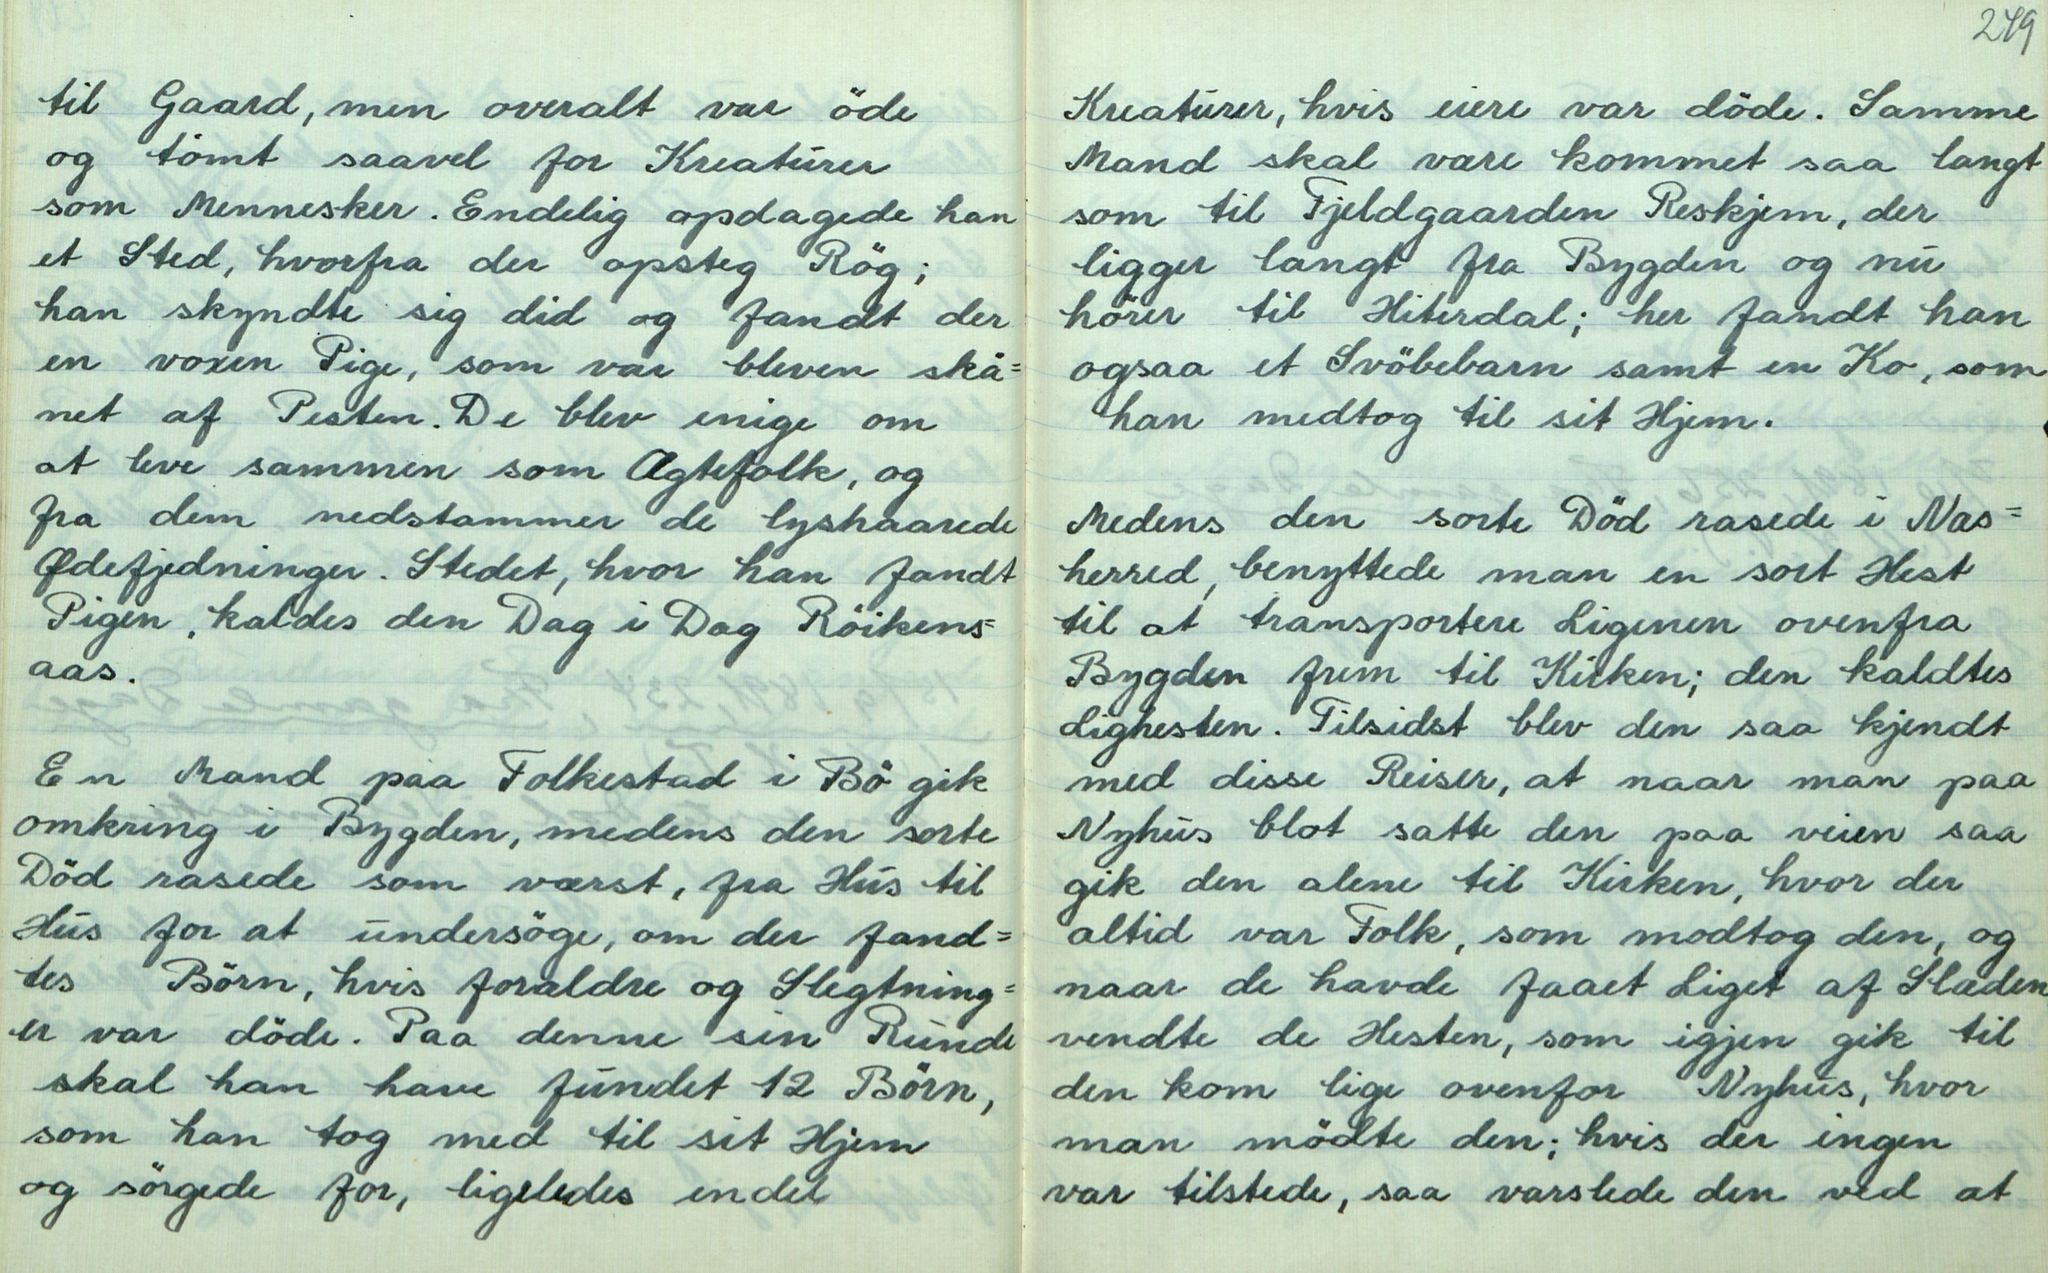 til Gaard, men overalt var öde
og tömt saavel for Kreaturer
som Mennesker. Endelig opdagede han
et Sted, hvorfra der opsteg Rög;
han skyndte sig did og fandt der
en voxen Pige, som var bleven skå=
net af Pesten. De blev enige om
at leve sammen som Ægtefolk, og
fra dem nedstammer de lyshaarede
Ødefjedninger. Stedet, hvor han fandt
Pigen, kaldes den Dag i Dag Röikens=
aas.
En Mand paa Folkestad i Bö gik
omkring i Bygden, medens den sorte
Död rasede som værst, fra Hus til
Hus for at undersöge, om der fand=
tes Börn, hvis forældre og Slegtning=
er var döde. Paa denne sin Runde
skal han have fundet 12 Börn,
som han tog med til sit Hjem
og sörgede for, ligeledes endel
249
Kreaturer, hvis eiere var döde. Samme
Mand skal være kommet saa langt
som til Fjeldgaarden Reskjem, der
ligger langt fra Bygden og nu
hörer til Hiterdal; her fandt han
ogsaa et Svöbebarn samt en Ko, som
han medtog til sit Hjem.
Medens den sorte Död rasede i Nas=
herred, benyttede man en sort Hest
til at transportere Ligenen ovenfra
Bygden frem til Kirken; den kaldtes
Lighesten. Tilsidst blev den saa kjendt
med disse Reiser, at naar man paa
Nyhus blot satte den paa veien saa
gik den alene til Kirken, hvor der
altid var Folk, som modtog den, og
naar de havde faaet Liget af Slæden
vendte de Hesten, som igjen gik til
den kom lige ovenfor Nyhus, hvor
man mödte den; hvis der ingen
var tilstede, saa varslede den ved at